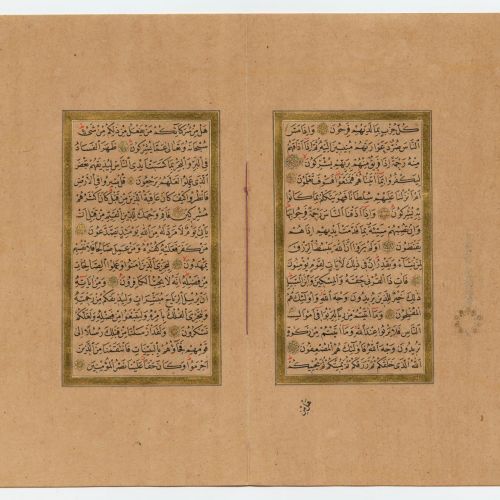 كل حزب بما لديهم فرحون واذا مس
الناس ضر دعوا ربهم منيبين اليه ثم اذا اذاقهم
منه رحمة اذا فريق منهم بربهم يشركون
ليكفروا بما اتيناهم فتمتعوا فسوف تعلمون
ام انزلنا عليهم سلطانا فهو يتكلم بما كانوا
به يشركون واذا اذقنا الناس رحمة فرحوا بها
وان تصبهم سيئة بما قدمت ايديهم اذا هم
يقنطون اولم يروا ان الله يبسط الرزق
لمن يشاء ويقدر ان في ذلك لايات لقوم يؤمنون
فات ذا القربى حقه والمسكين وابن السبيل
ذلك خير للذين يريدون وجه الله واولئك هم
المفلحون وما اتيتم من ربا ليربو في اموال
الناس فلا يربو عند الله وما اتيتم من زكوة
تريدون وجه الله فاولئك هم المضعفون
الله الذي خلقكم ثم رزقكم ثم يميتكم ثم يحييكم
هل من
هل من شركائكم من يفعل من ذلكم من شيء
سبحانه وتعالى عما يشركون ظهر الفساد
في البر والبحر بما كسبت ايدي الناس ليذيقهم بعض
الذي عملوا لعلهم يرجعون قل سيروا في الارض
فانظروا كيف كان عاقبة الذين من قبل كان اكثرهم
مشركين فاقم وجهك للدين القيم من قبل ان
ياتي يوم لا مرد له من الله يومئذ يصدعون
من كفر فعليه كفره ومن عمل صالحا فلانفسهم
يمهدون ليجزي الذين امنوا وعملوا الصالحات
من فضله انه لا يحب الكافرين ومن اياته
ان يرسل الرياح مبشرات وليذيقكم من رحمته
ولتجري الفلك بامره ولتبتغوا من فضله ولعلكم
تشكرون ولقد ارسلنا من قبلك رسلا الى
قومهم فجاؤهم بالبينات فانتقمنا من الذين
اجرموا وكان حقا علينا نصر المؤمنين